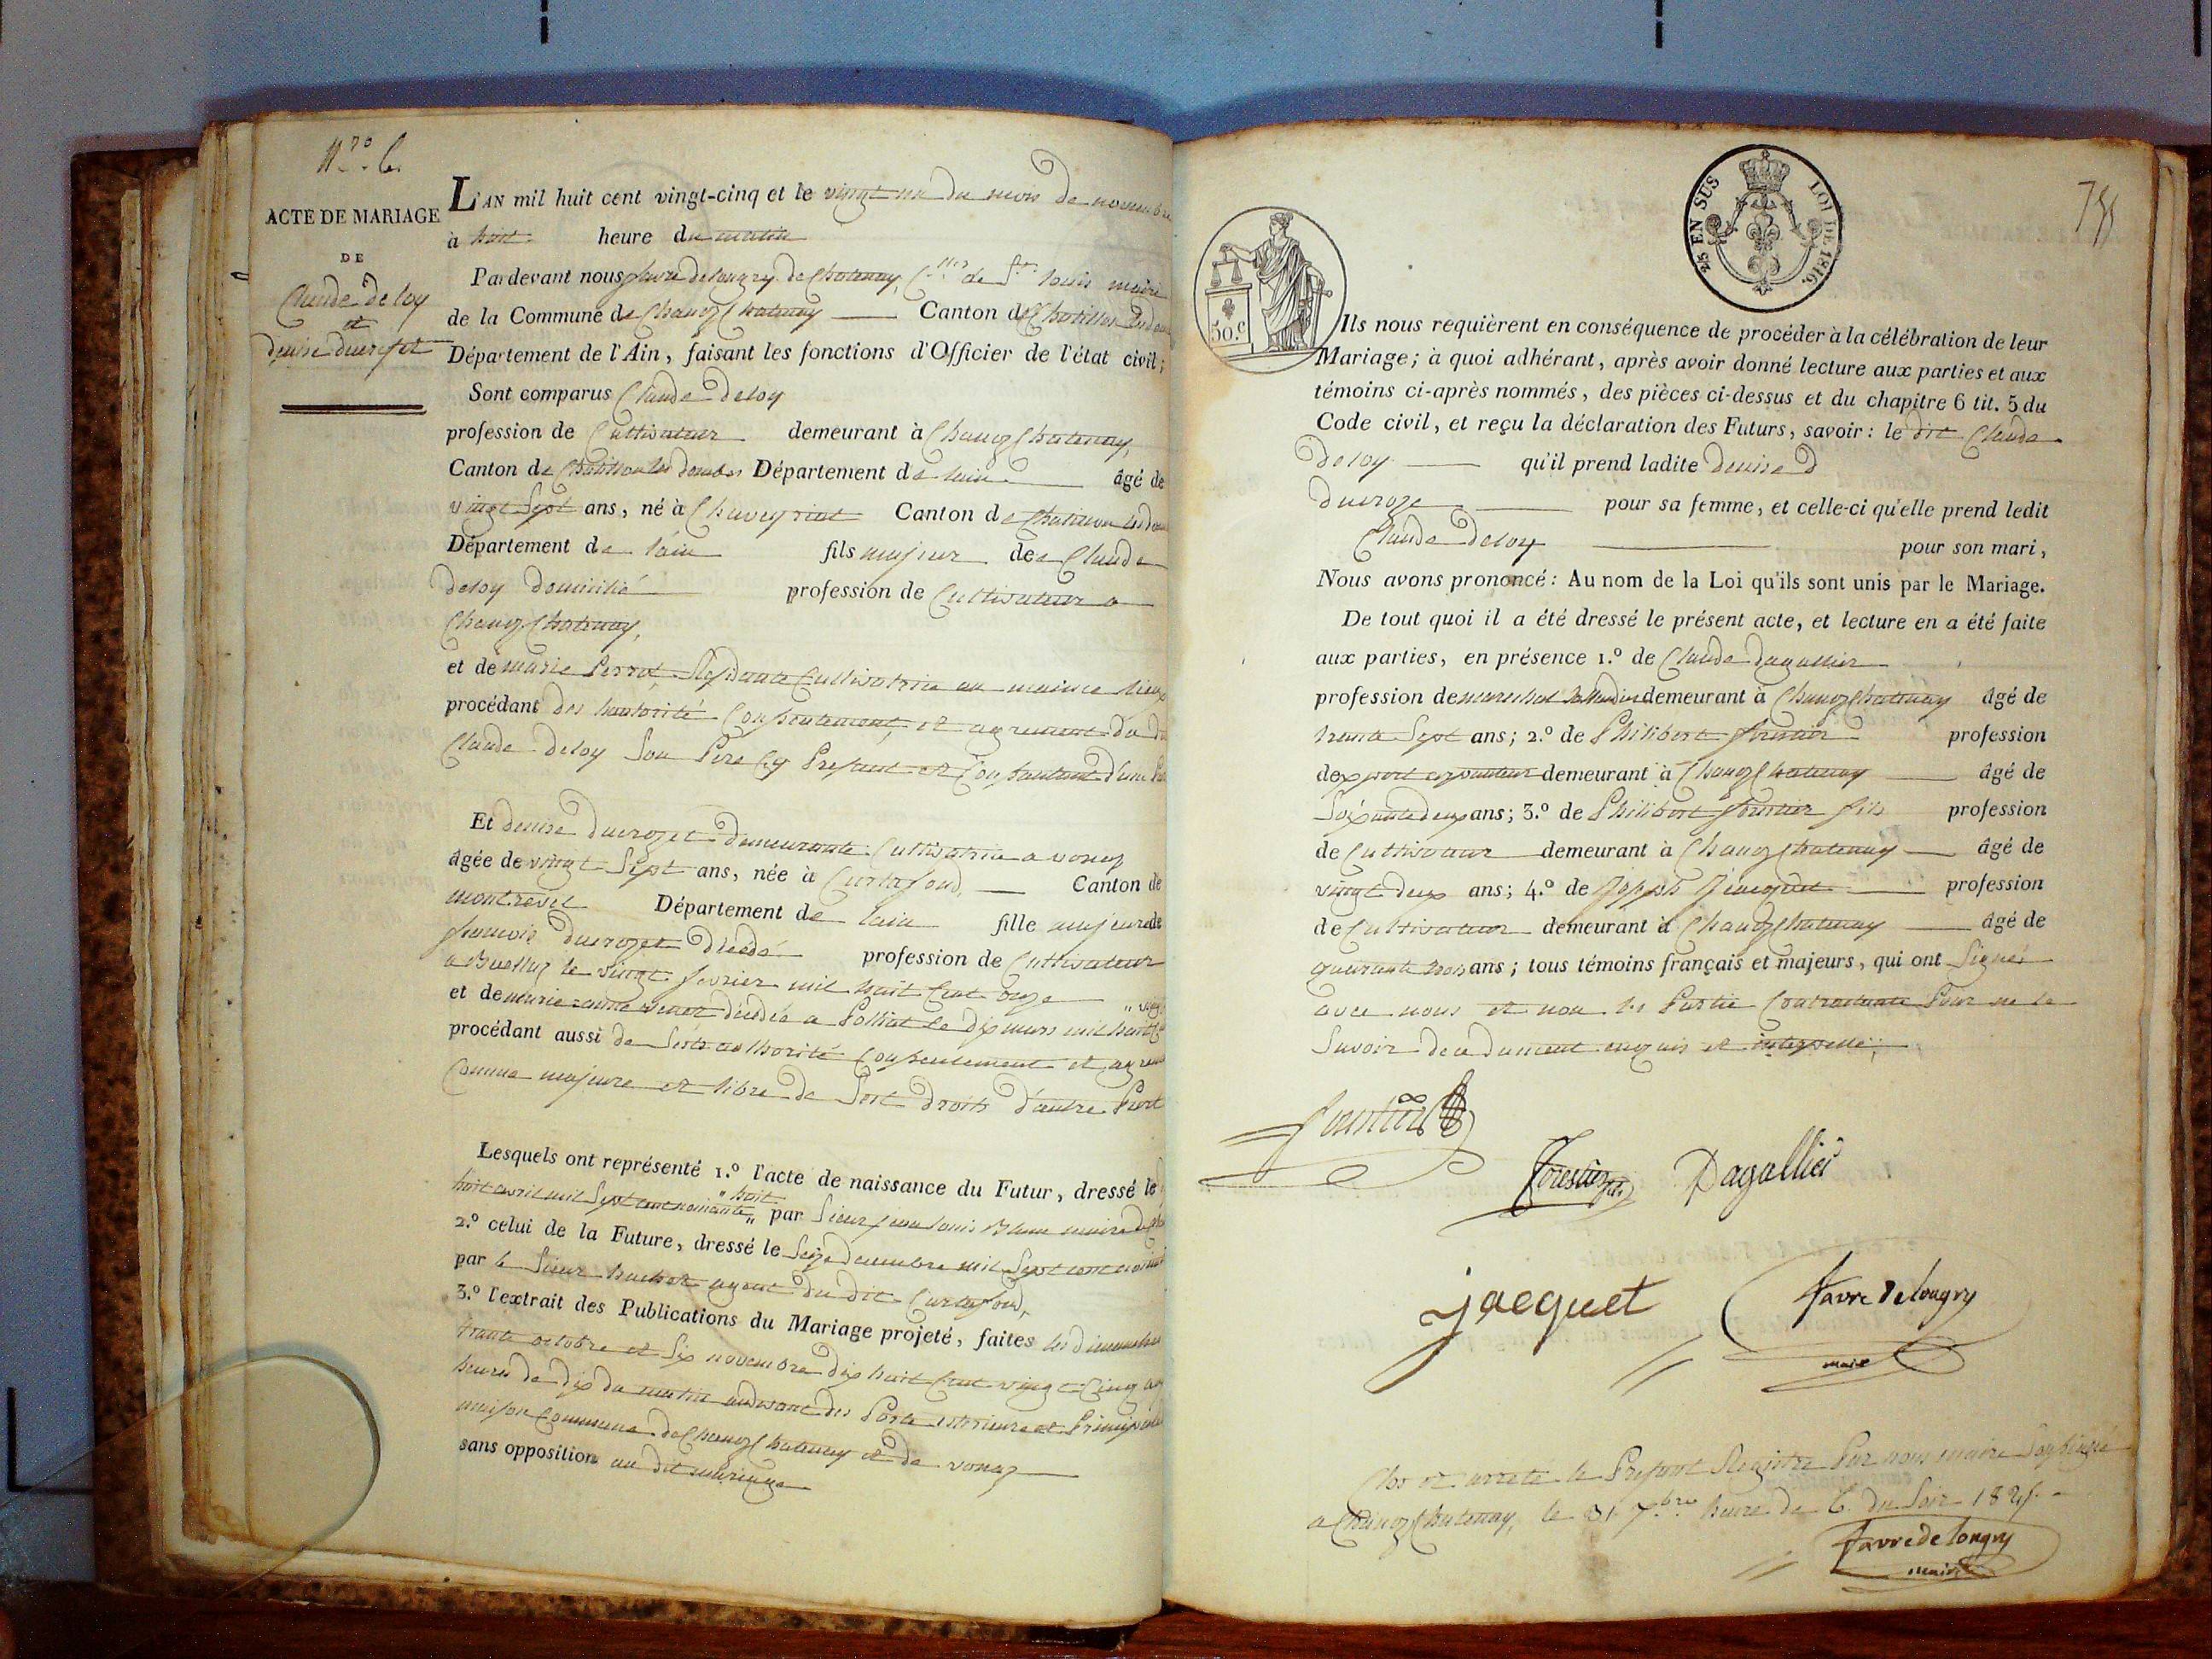 N.ro 6.
ACTE DE MARIAGE
DE
Claude deloy
et
denise ducroset
L'AN mil huit cent vingt-cinq et le vingt un du mois de novembre
à huit heure du matin
Pardevant nous favre delongry de Chatenay, de St. louis maire
de la Commune de Chanoz Chatenay Canton de Chatillon
Département de l'Ain, faisant les fonctions d'Officier de l'état civil;
Sont comparus Claude deloy
profession de Cultivateur demeurant à Chanoz Chatenay,
Canton de Chatillon les dombes Département de lain âgé de
vingt Sept ans, né à Chaveyriat Canton de Chatillon
Département de lain fils majeur de Claude
deloy domicilié profession de Cultivateur a
Chanoz Chatenay,
et de marie Perrot Residante Cultivatrice au maime lieux
procédant des hautorité Consentement, et agrement du
Claude deloy Son Pere Cy Present et Consantant d'une
Et denise ducrozet demeurante Cultivatrice a vonaz
âgée de vingt Sept ans, née à Curtafond, Canton de
montrevel Département de lain fille majeure de
francois ducrozet décédé profession de Cultivateur
a Buellaz le vingt fevrier mil huit Cent onze
et de marie anne décédée a Polliat le dix mars mil huit
procédant aussi de Ses authorité Consentement et
Comme majeure et libre de Sest droits d'autre Part
Lesquels ont représenté 1.º l'acte de naissance du Futur, dressé le
huit avril mil Sept cent nonante huit par Sieur jean louis Blanc maire
2.º celui de la Future, dressé le Seize decembre mil Sept cent
par le Sieur agent du dit Curtafond,
3.º l'extrait des Publications du Mariage projeté, faites les dimanches
trante octobre et Six novembre dix huit Cent vingt Cinq
heures de dix du matin audevant des Porte exterieure et Principale
maison Commune de Chanoz Chatenay et de vonaz
sans opposition au dit mariage
50.c
25 EN SUS LOI DE 1816.
Ils nous requièrent en conséquence de procéder à la célébration de leur
Mariage; à quoi adhérant, après avoir donné lecture aux parties et aux
témoins ci-après nommés, des pièces ci-dessus et du chapitre 6 tit. 5 du
Code civil, et reçu la déclaration des Futurs, savoir: le dit Claude
deloy qu'il prend ladite denise d
ducroze pour sa femme, et celle-ci qu'elle prend ledit
Claude deloy pour son mari,
Nous avons prononcé: Au nom de la Loi qu'ils sont unis par le Mariage.
De tout quoi il a été dressé le présent acte, et lecture en a été faite
aux parties, en présence 1.º de Claude dagallier
profession de marechal demeurant à Chanoz Chatenay âgé de
trente Sept ans; 2.º de Philibert profession
de demeurant à Chanoz Chatenay âgé de
Soixante deux ans; 3.º de Philibert fils profession
de Cultivateur demeurant à Chanoz Chatenay âgé de
vingt deux ans; 4.º de Joseph profession
de Cultivateur demeurant à Chanoz Chatenay âgé de
quarante trois ans; tous témoins français et majeurs, qui ont Signés
avec nous et non les Partie Contractante Pour ne le
Savoir de ce dument enquis et interpellé;
Dagallier
jacquet
favre delongry
maire
Clos et arrete le Present Registre Par nous maire Soussigné
a Chanoz Chatenay, le 31 heure de 6. du Soir 1825.
favre de longry
maire